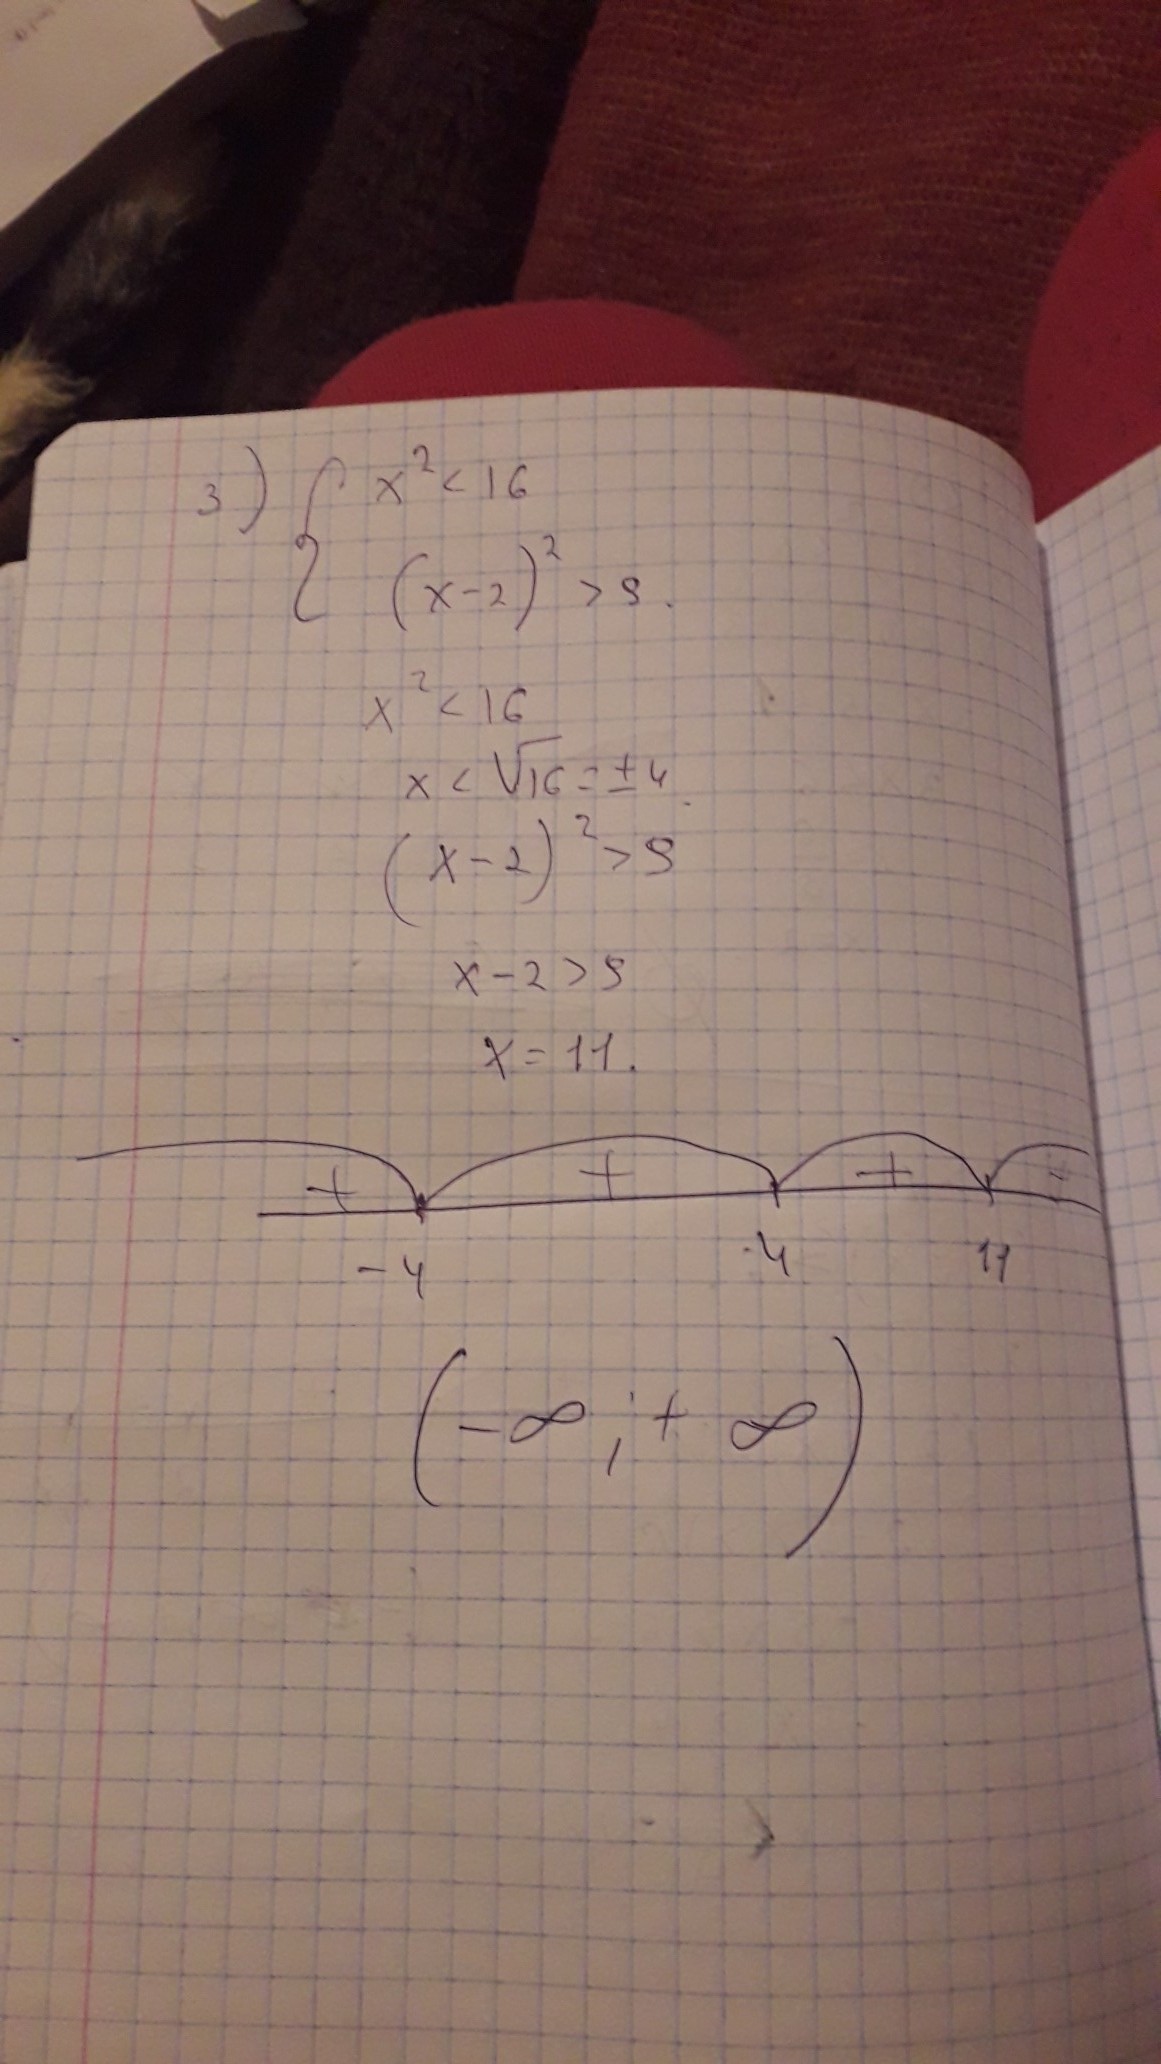 3) { x² < 16
(x-2)² > 9.
x² < 16
x < √16 = ±4.
(x-2)² > 9
x-2 > 9
x = 11.
+ + + +
-4 4 11
(-∞ ; + ∞)